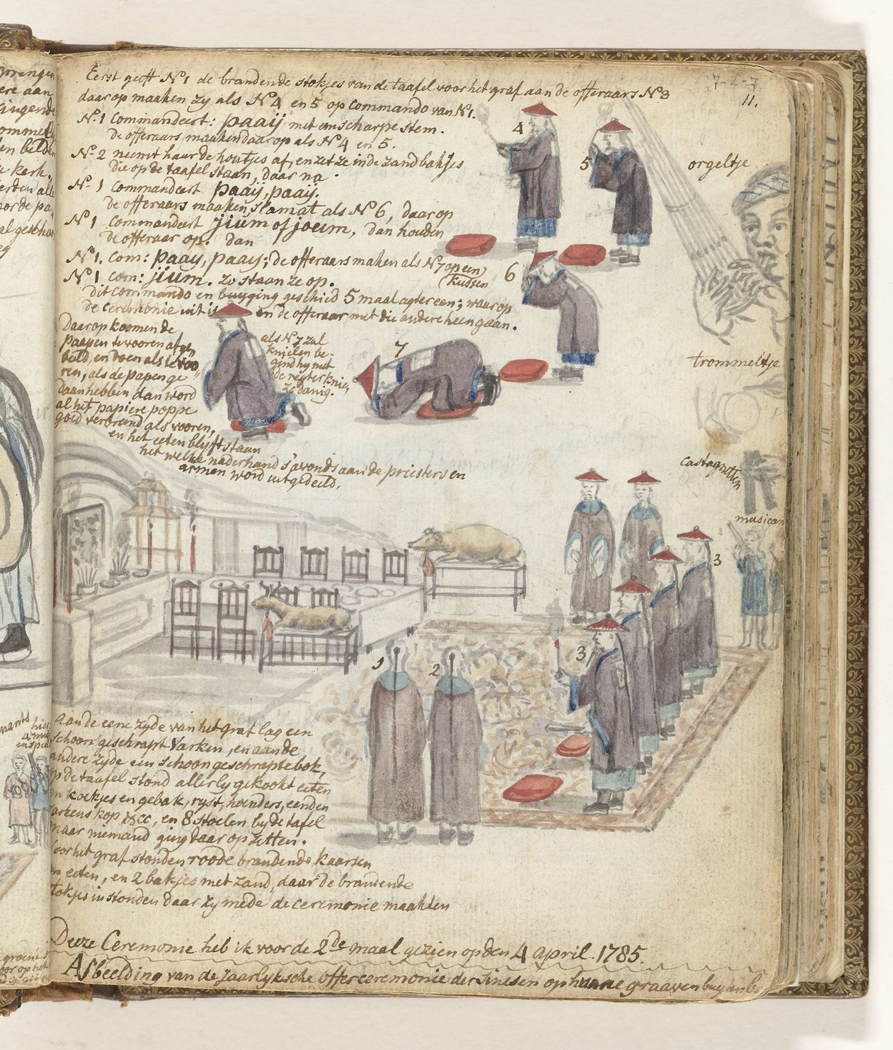 Eerst geeft N.1 de brandende stokjes van de taafel voor het graf aan de offeraars N.3
daarop maaken zy als N.4 en 5 op commando van N.1.
N.1 commandeert: paaij met een scharpe stem.
de offeraars maaken daar op als N.4 en 5.
N.2 neemt haur de houtjes af, en zet ze in de zand bakjes
die op de taafel staan, daar na
N.1 commandeert paay, paay,
de offeraars maaken slamat als N.6, daar op
N.1 commandeert jium of joem, dan houden
de offeraar op: dan
N.1. com: paay, paay; de offeraars maken als N.7 op een
kussen
N.1 com: jium. zo staan ze op.
dit commando en buyging geschied 5 maal agter een; waar op
de ceremonie uit is en de offeraar met die andere heen gaan.
Daar op koomen de
paapen te vooren af en
beld, en doen als te voo
ren, als de papen ge
daan hebben dan word
al het papiere poppe
goed verbrand als vooren,
en het eeten blyft staan
het welke naderhand s'avonds aan de priesters en
armen word uitgedeeld.
als N.7 zal
knielen be-
gind hy met
de regter knie,
zo danig.
4
5
6
7
7-2-7
11.
orgeltje
trommeltje
castagnetten
musicant
3
3
1
2
Aan de eene zyde van het graf lag een
schoon geschrapt Varken, en aan de
andere zyde een schoon geschrapte bok,
op de taafel stond allerly gekookt eeten
en koekjes en gebak, ryst, hoenders, eenden
varkens kop &cc, en 8 stoelen by de tafel
maar niemand ging daar op zitten.
voor het graf stonden roode brandende kaarsen
en eeten, en 2 bakjes met zand, daar de brandende
stokjes in stonden daar zy mede de ceremonie maakten
Deeze Ceremonie heb ik voor de 2de maal gezien op den 4 april. 1785.
Afbeelding van de Jaarlyksche offerceremonie der Sineesen op haare graaven buyten